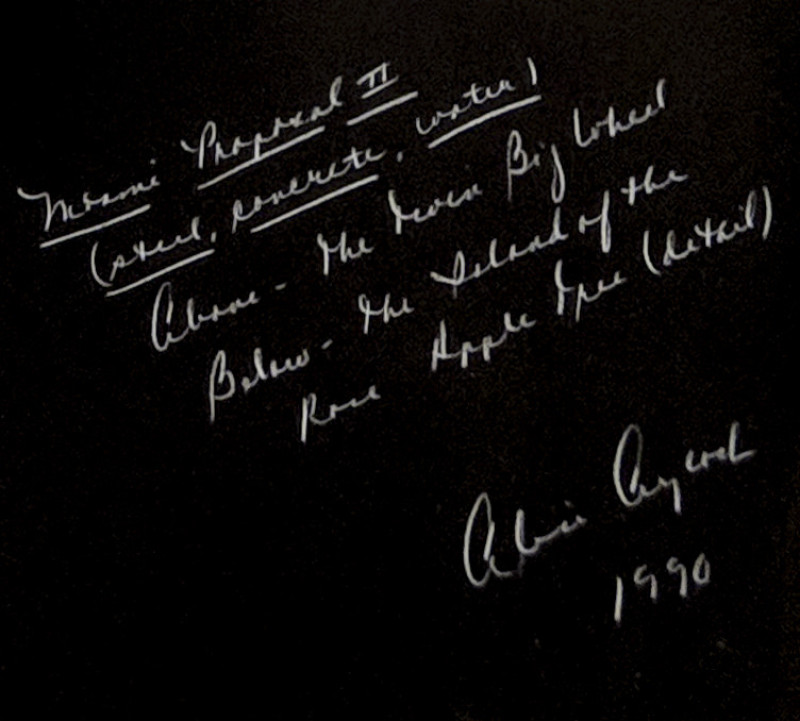 Miami Proposal II
(steel, concrete, water)
Above - The Twin Big Wheel
Below - The Island of the
Rose Apple Tree (detail)
Alice Aycock
1990